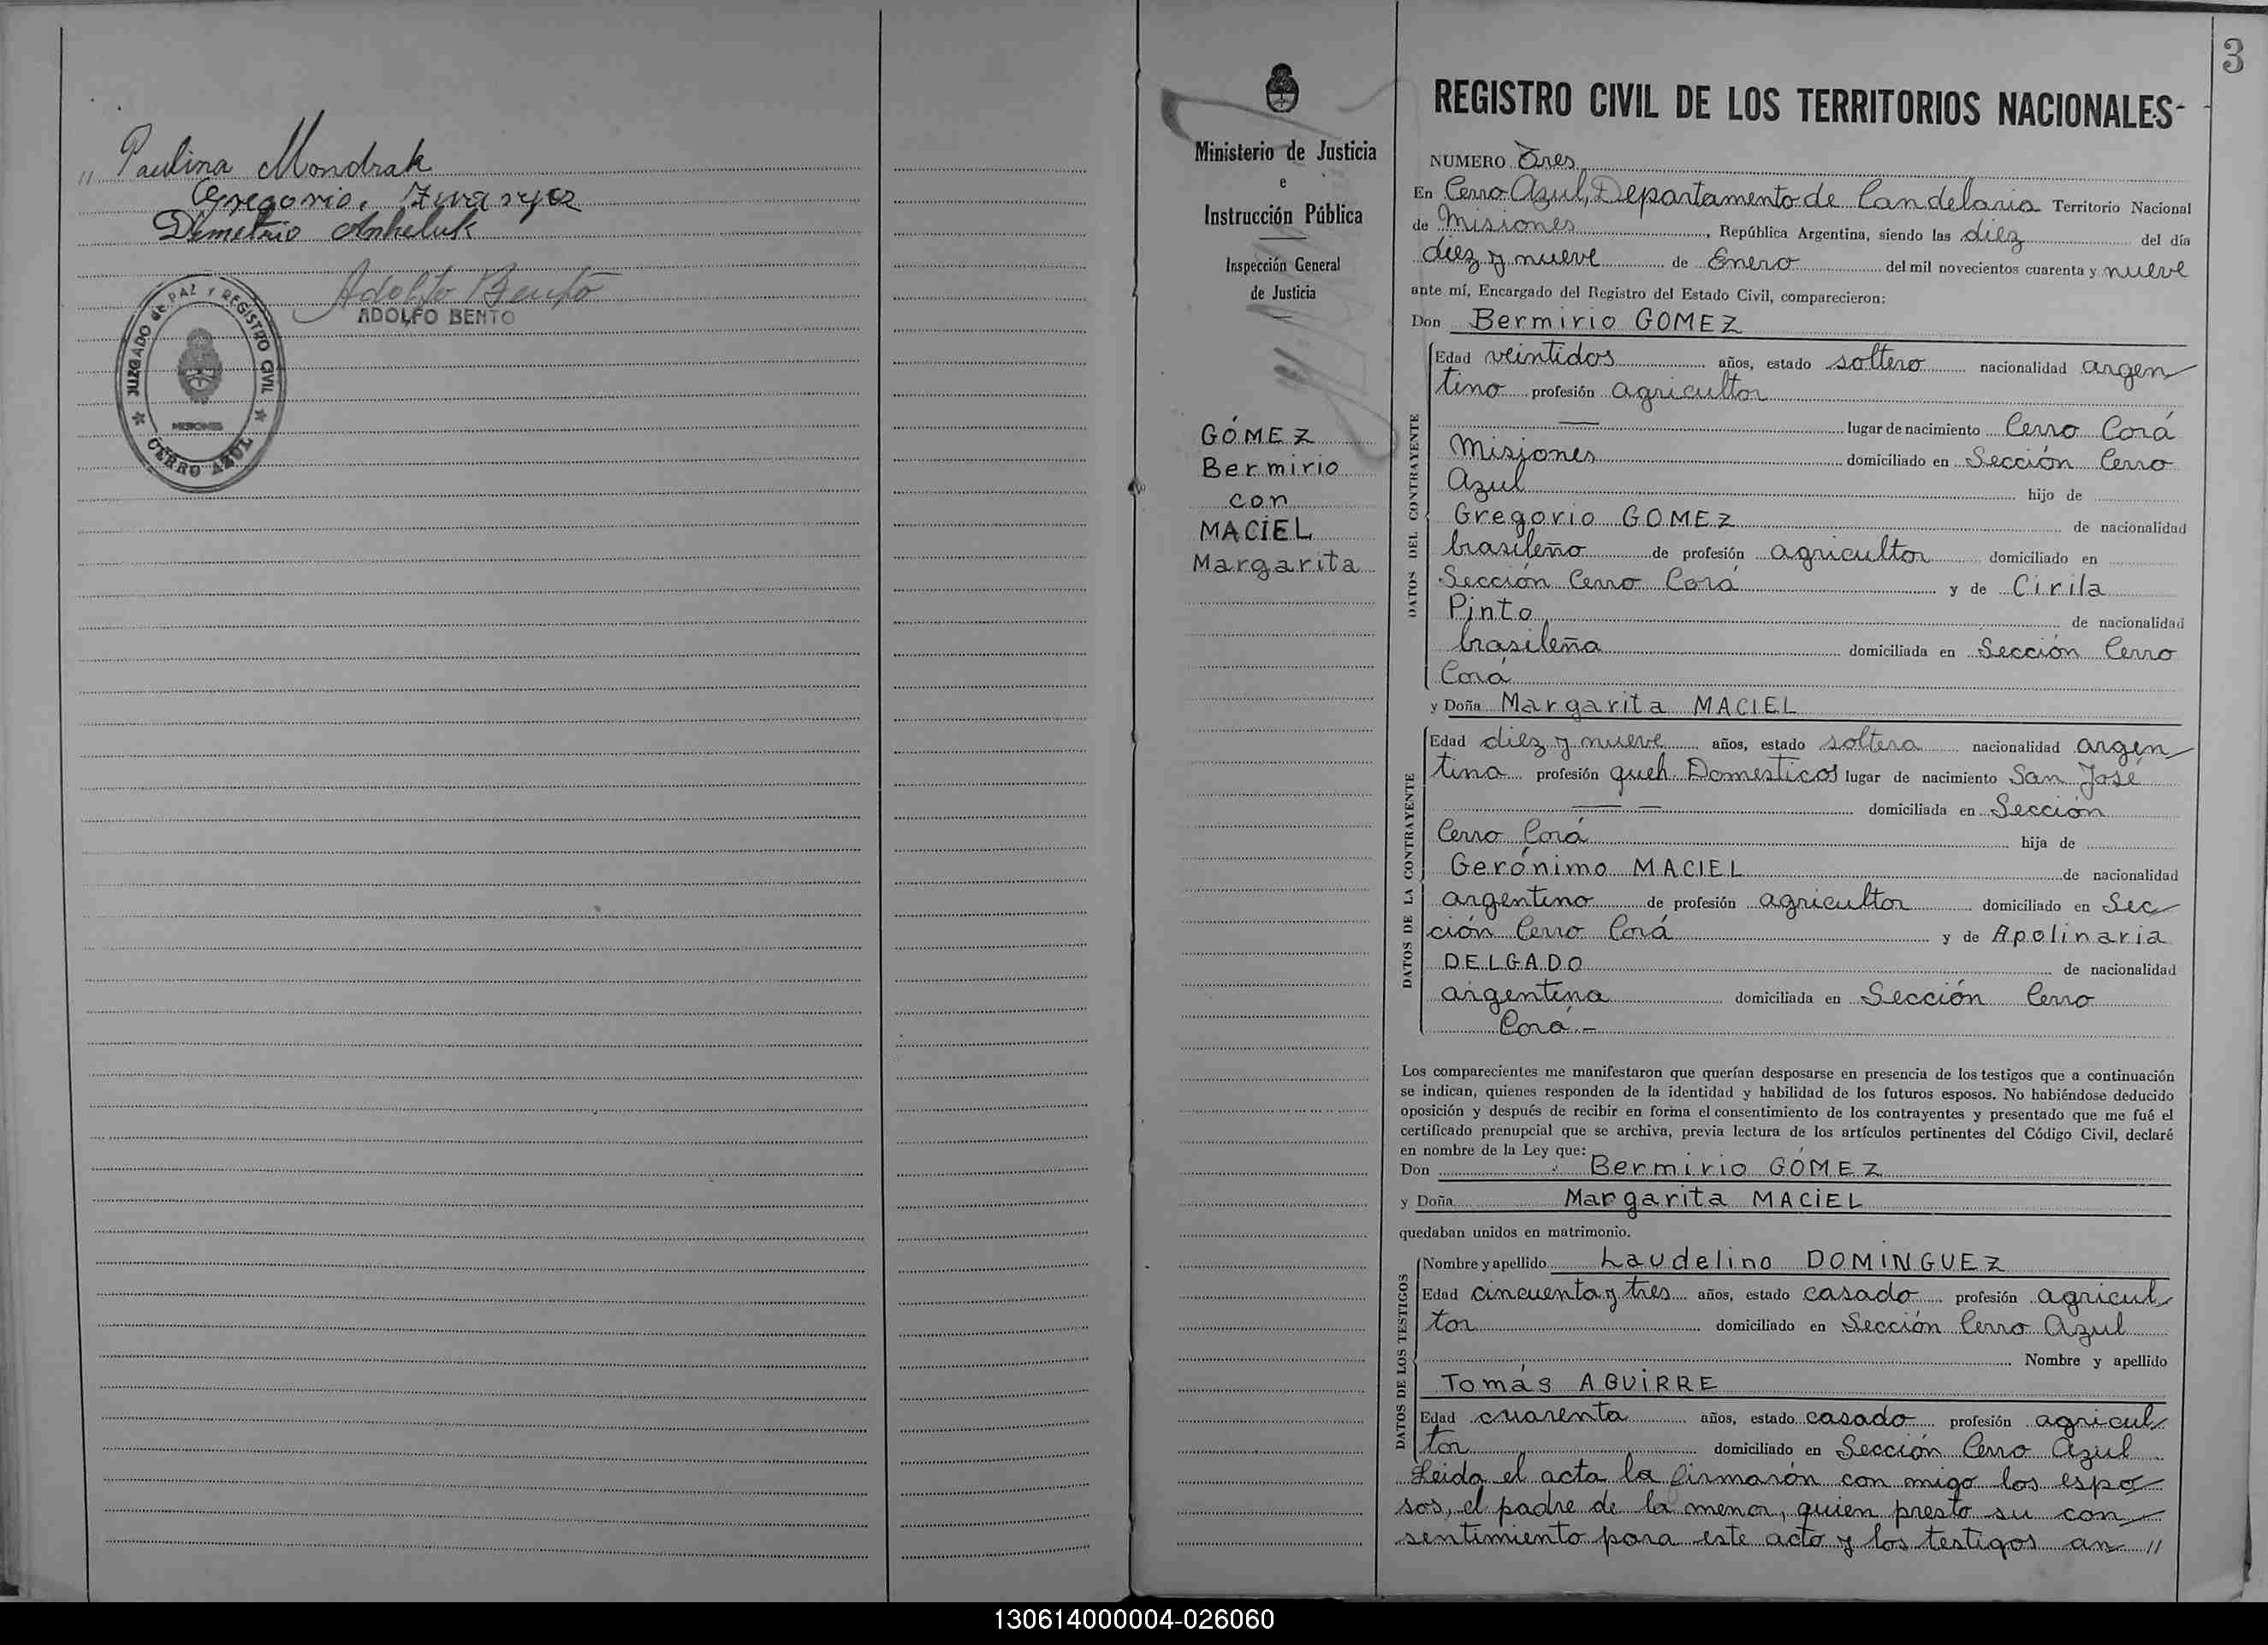 " Paulina Mondrak
Gregorio
Demetrio Anheluk
Adolfo Bento
ADOLFO BENTO
JUZGADO de PAZ Y REGISTRO CIVIL
MISIONES
CERRO AZUL
3
Ministerio de Justicia
e
Instrucción Pública
Inspección General
de Justicia
GÓMEZ
Bermirio
con
MACIEL
Margarita
REGISTRO CIVIL DE LOS TERRITORIOS NACIONALES
NUMERO Tres
En Cerro Azul, Departamento de Candelaria Territorio Nacional
de Misiones, República Argentina, siendo las diez del día
diez y nueve de Enero del mil novecientos cuarenta y nueve
ante mí, Encargado del Registro del Estado Civil, comparecieron:
Don Bermirio GOMEZ
DATOS DEL CONTRAYENTE
Edad veintidos años, estado soltero nacionalidad argen
tino profesión agricultor
lugar de nacimiento Cerro Corá
Misiones domiciliado en Sección Cerro
Azul hijo de
Gregorio GOMEZ de nacionalidad
brasileño de profesión agricultor domiciliado en
Sección Cerro Corá y de Cirila
Pinto de nacionalidad
brasileña domiciliada en Sección Cerro
Corá
y Doña Margarita MACIEL
DATOS DE LA CONTRAYENTE
Edad diez y nueve años, estado soltera nacionalidad argen
tina profesión queh. Domesticos lugar de nacimiento San José
domiciliada en Sección
Cerro Corá hija de
Gerónimo MACIEL de nacionalidad
argentino de profesión agricultor domiciliado en Sec
ción Cerro Corá y de Apolinaria
DELGADO de nacionalidad
argentina domiciliada en Sección Cerro
Corá.-
Los comparecientes me manifestaron que querían desposarse en presencia de los testigos que a continuación
se indican, quienes responden de la identidad y habilidad de los futuros esposos. No habiéndose deducido
oposición y después de recibir en forma el consentimiento de los contrayentes y presentado que me fué el
certificado prenupcial que se archiva, previa lectura de los artículos pertinentes del Código Civil, declaré
en nombre de la Ley que:
Don Bermirio GÓMEZ
y Doña Margarita MACIEL
quedaban unidos en matrimonio.
DATOS DE LOS TESTIGOS
Nombre y apellido Laudelino DOMINGUEZ
Edad cincuenta y tres años, estado casado profesión agricul
tor domiciliado en Sección Cerro Azul
Nombre y apellido
Tomás AGUIRRE
Edad cuarenta años, estado casado profesión agricul
tor domiciliado en Sección Cerro Azul
Leida el acta la firmarón con migo los espo
sos, el padre de la menor, quien presto su con
sentimiento para este acto y los testigos an "
130614000004-026060